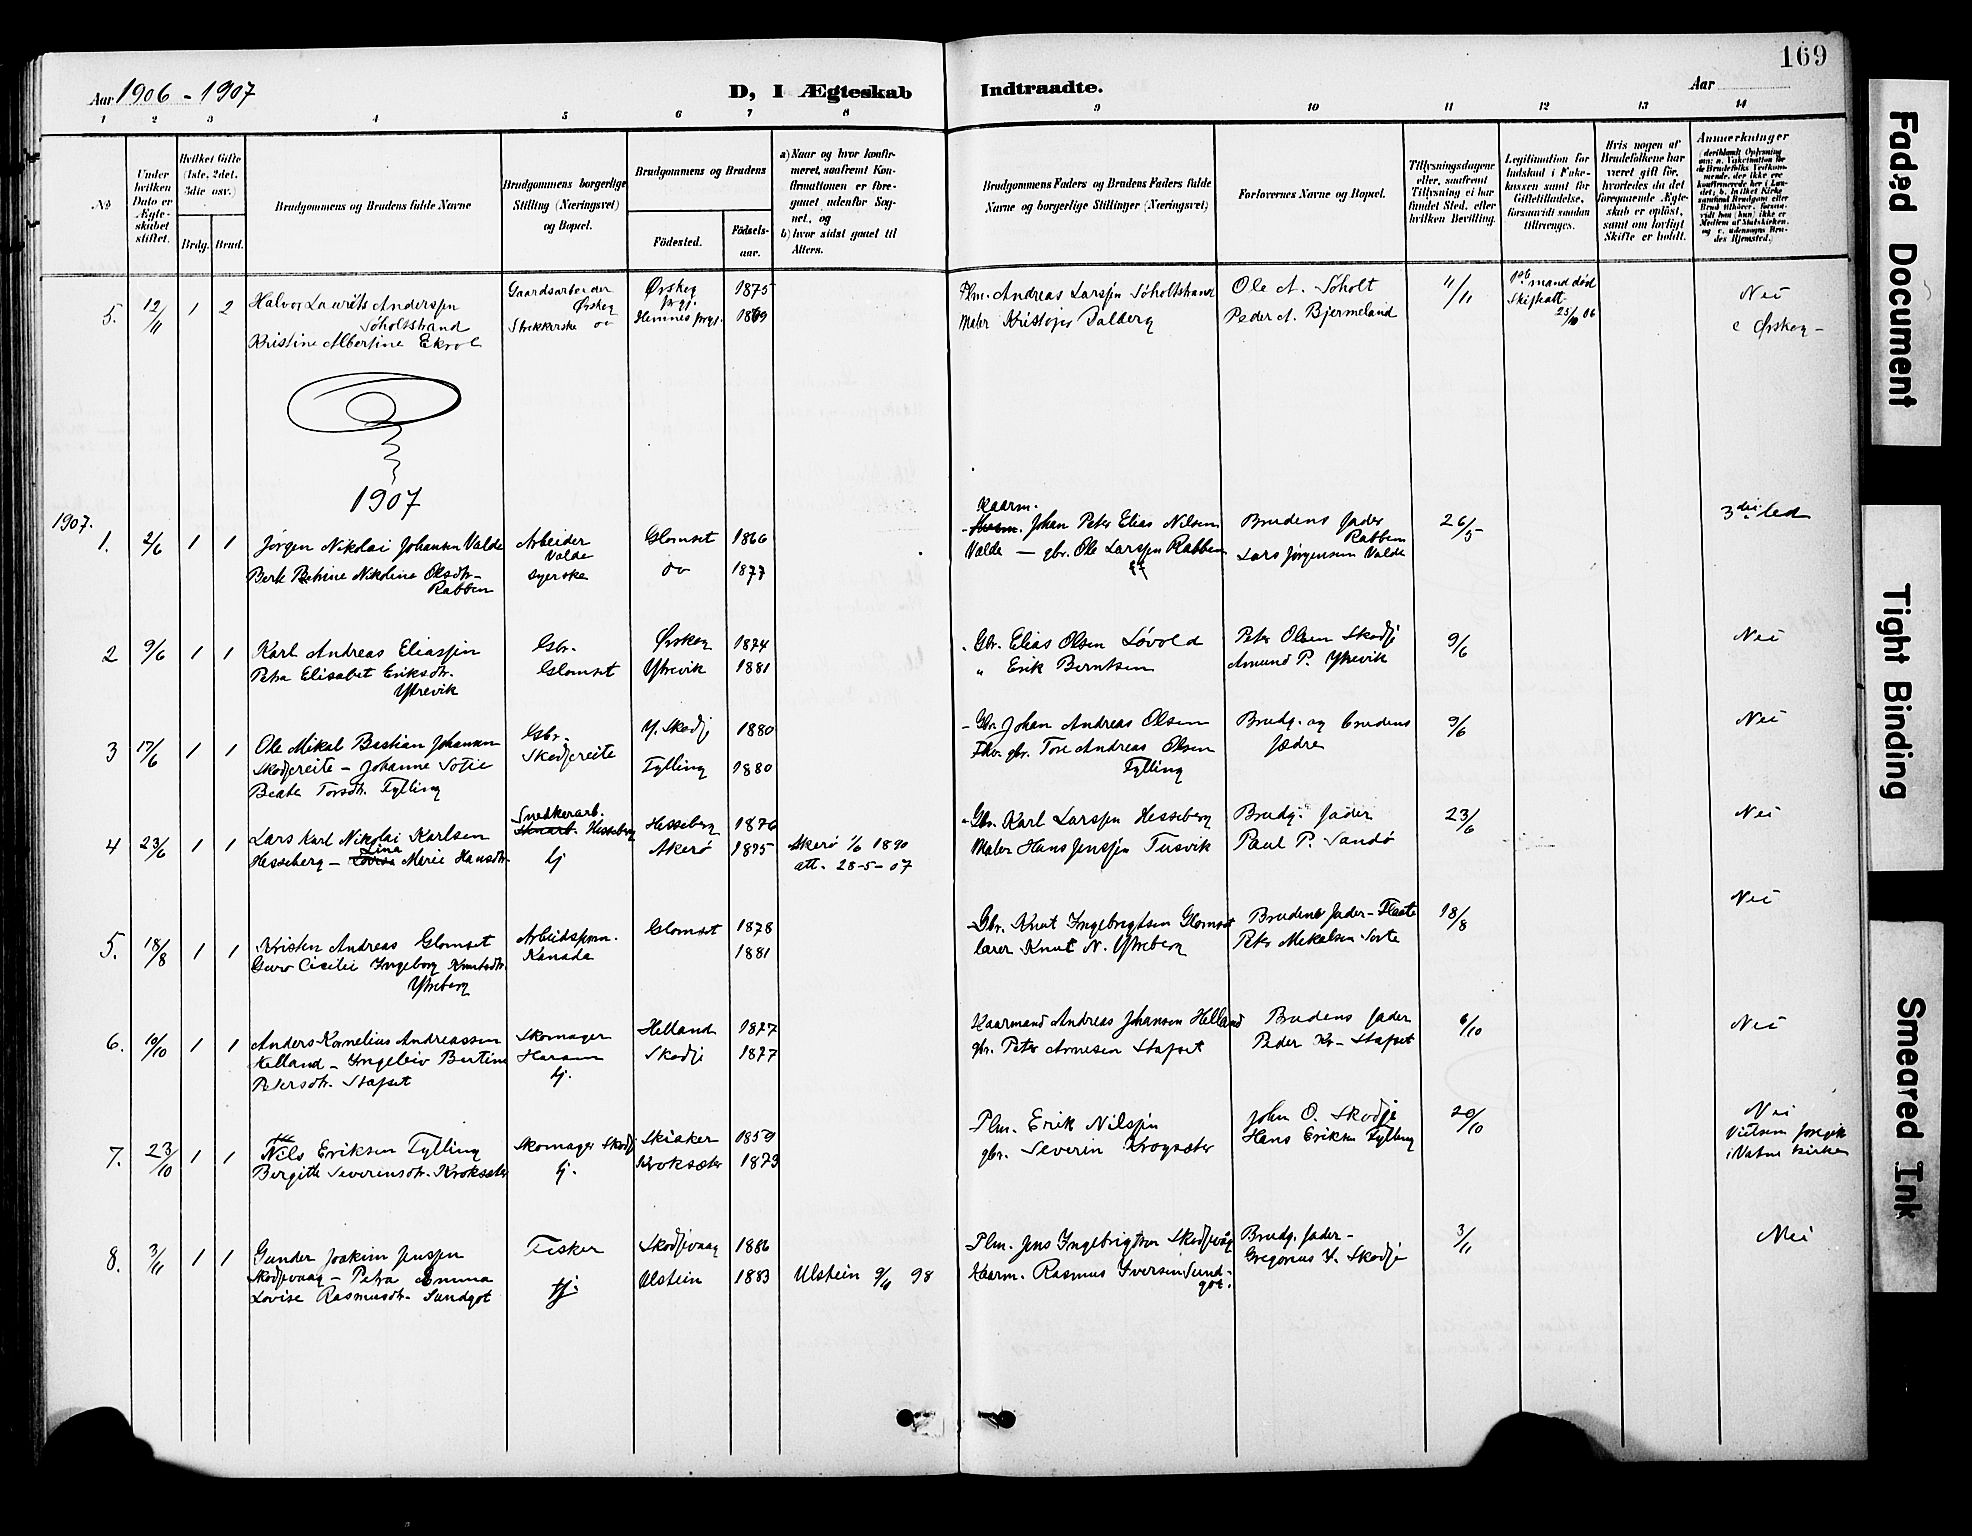 169
Aar 1906 - 1907
D, I Ægteskab Indtraadte.
Aar
1 2 3 4 5 6 7 8 9 10 11 12 13 14
No
Under hvilken Dato er Ægteskabet stiftet.
Hvilket Gifte (1ste, 2det, 3die osv.)
Brdg. Brud.
Brudgommens og Brudens fulde Navne
Brudgommens borgerlige Stilling (Næringsvei) og Bopæl.
Brudgommens og Brudens
Födested.
Födselsaar.
a) Naar og hvor konfirmeret, saafremt Konfirmationen er foregaaet udenfor Sognet, og
b) hvor sidst gaaet til Alters.
Brudgommens Faders og Brudens Faders fulde Navne og borgerlige Stillinger (Næringsvei)
Forlovernes Navne og Bopæl.
Tillysningsdagene eller, saafremt Tillysning ei har fundet Sted, efter hvilken Bevilling.
Legitimation for Indskud i Enkekassen samt for Giftetilladelse, forsaavidt saadan tiltrænges.
Hvis nogen af Brudefolkene har været gift för, hvorledes da det foregaaende Ægteskab er oplöst, samt om lovligt Skifte er holdt.
Anmerkninger
5. 12/11 1 2
Halvor Laurits Anderssen
Søholtstrand
Kristine Albertine Ekrol
Gaardsarbeider
Ørskog
Strikkerske do
Ørskog prgj. 1875
Hemnes prgj. 1869
Plm. Andreas Larssen Søholtstrand
Maler Kristofer Dalberg
Ole A. Søholt
Peder A. Bjermeland
4/11
mand død
Skifteatt.
25/10 06
Nei
c Ørskog -
1907
1907.
1. 2/6 1 1
Jørgen Nikolai Johansen Valde
Berte Petrine Nikoline Olsdtr.
Rabben
Arbeider
Valde
syerske
Glomset 1866
do 1877
Kaarm.
Johan Peter Elias Nilsen
Valde — gbr. Ole Larssen Rabben
Brudens fader
Rabben
Lars Jørgensen Valde
26/5
3die led
2 9/6 1 1
Karl Andreas Eliassen
Petra Elisabet Eriksdtr.
Ytrevik
Gbr.
Glomset
Ørskog 1874
Ytrevik 1881
Gbr. Elias Olsen Løvold
" Erik Berntsen
Peter Olsen Skodje
Amund P. Ytrevik
9/6
Nei
3 17/6 1 1
Ole Mikal Bastian Johansen
Skodjereite - Johanne Sofie
Beate Torsdtr. Fylling
Gbr.
Skodjereite
Y. Skodj 1880
Fylling 1880
Gbr. Johan Andreas Olsen
Fhv. gbr. Tore Andreas Olsen
Fylling
Brudg. og brudens
fædre
9/6
Nei
4 23/6 1 1
Lars Karl Nikolai Karlsen
Hesseberg - Lina Marie Hansdtr.
Snedkerarb.
Hesseberg
hj
Hesseberg 1876
Akerø 1875
Akerø 1/6 1890
att. 28-5-07
Gbr. Karl Larssen Hesseberg
Maler Hans Jenssen Tusvik
Brudg. fader
Paul P. Sandø
23/6
Nei
5. 18/8 1 1
Kristen Andreas Glomset
Guro Cicilie Ingeborg Knutsdtr.
Ytreberg
Arbeidsform.
Kanada
Glomset 1878
1881
Gbr. Knut Ingebrigtsen Glomset
lærer Knut N. Ytreberg
Brudens fader - Flaate
Peter Mikalsen Sorte
18/8
Nei
6. 10/10 1 1
Anders Kornelius Andreassen
Helland - Ingeleiv Bertine
Petersdtr. Stafset
Skomager
Haram
hj.
Helland 1877
Skodje 1877
Kaarmand Andreas Johansen Helland
gbr. Peter Arnesen Stafset
Brudens fader
Peder Kr. Stafset
6/10
Nei
7. 23/10 1 1
Nils Eriksen Fylling
Birgitte Severinsdtr. Kroksæter
Skomager Skodj
hj.
Skiaker 1859
Kroksæter 1873
Plm. Erik Nilssen
gbr. Severin Krogsæter
John O. Skodje
Hans Eriksen Fylling
20/10
Nei
Vielsen foregik
i Vatne kirke
8. 3/11 1 1
Gunder Joakim Jenssen
Skodjevaag - Petra Emma
Lovise Rasmusdtr. Sundgot
Fisker
hj.
Skodjevaag 1886
Ulstein 1883
Ulstein 9/4 98
Plm. Jens Ingebrigtsen Skodjevåg
Kaarm. Rasmus Iversen Sundgot.
Brudg. fader -
Gregorius I. Skodje
3/11
Nei
Faded Document
Tight Binding
Smeared Ink